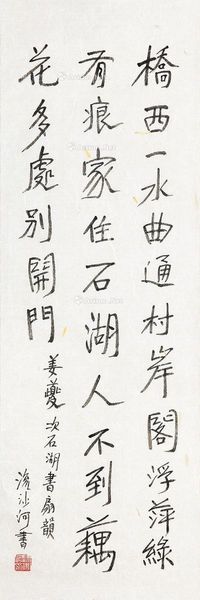 橋西一水曲通村岸閣浮萍綠
有痕家住石湖人不到藕
花多處別開門
姜夔次石湖書扇韻
流沙河書